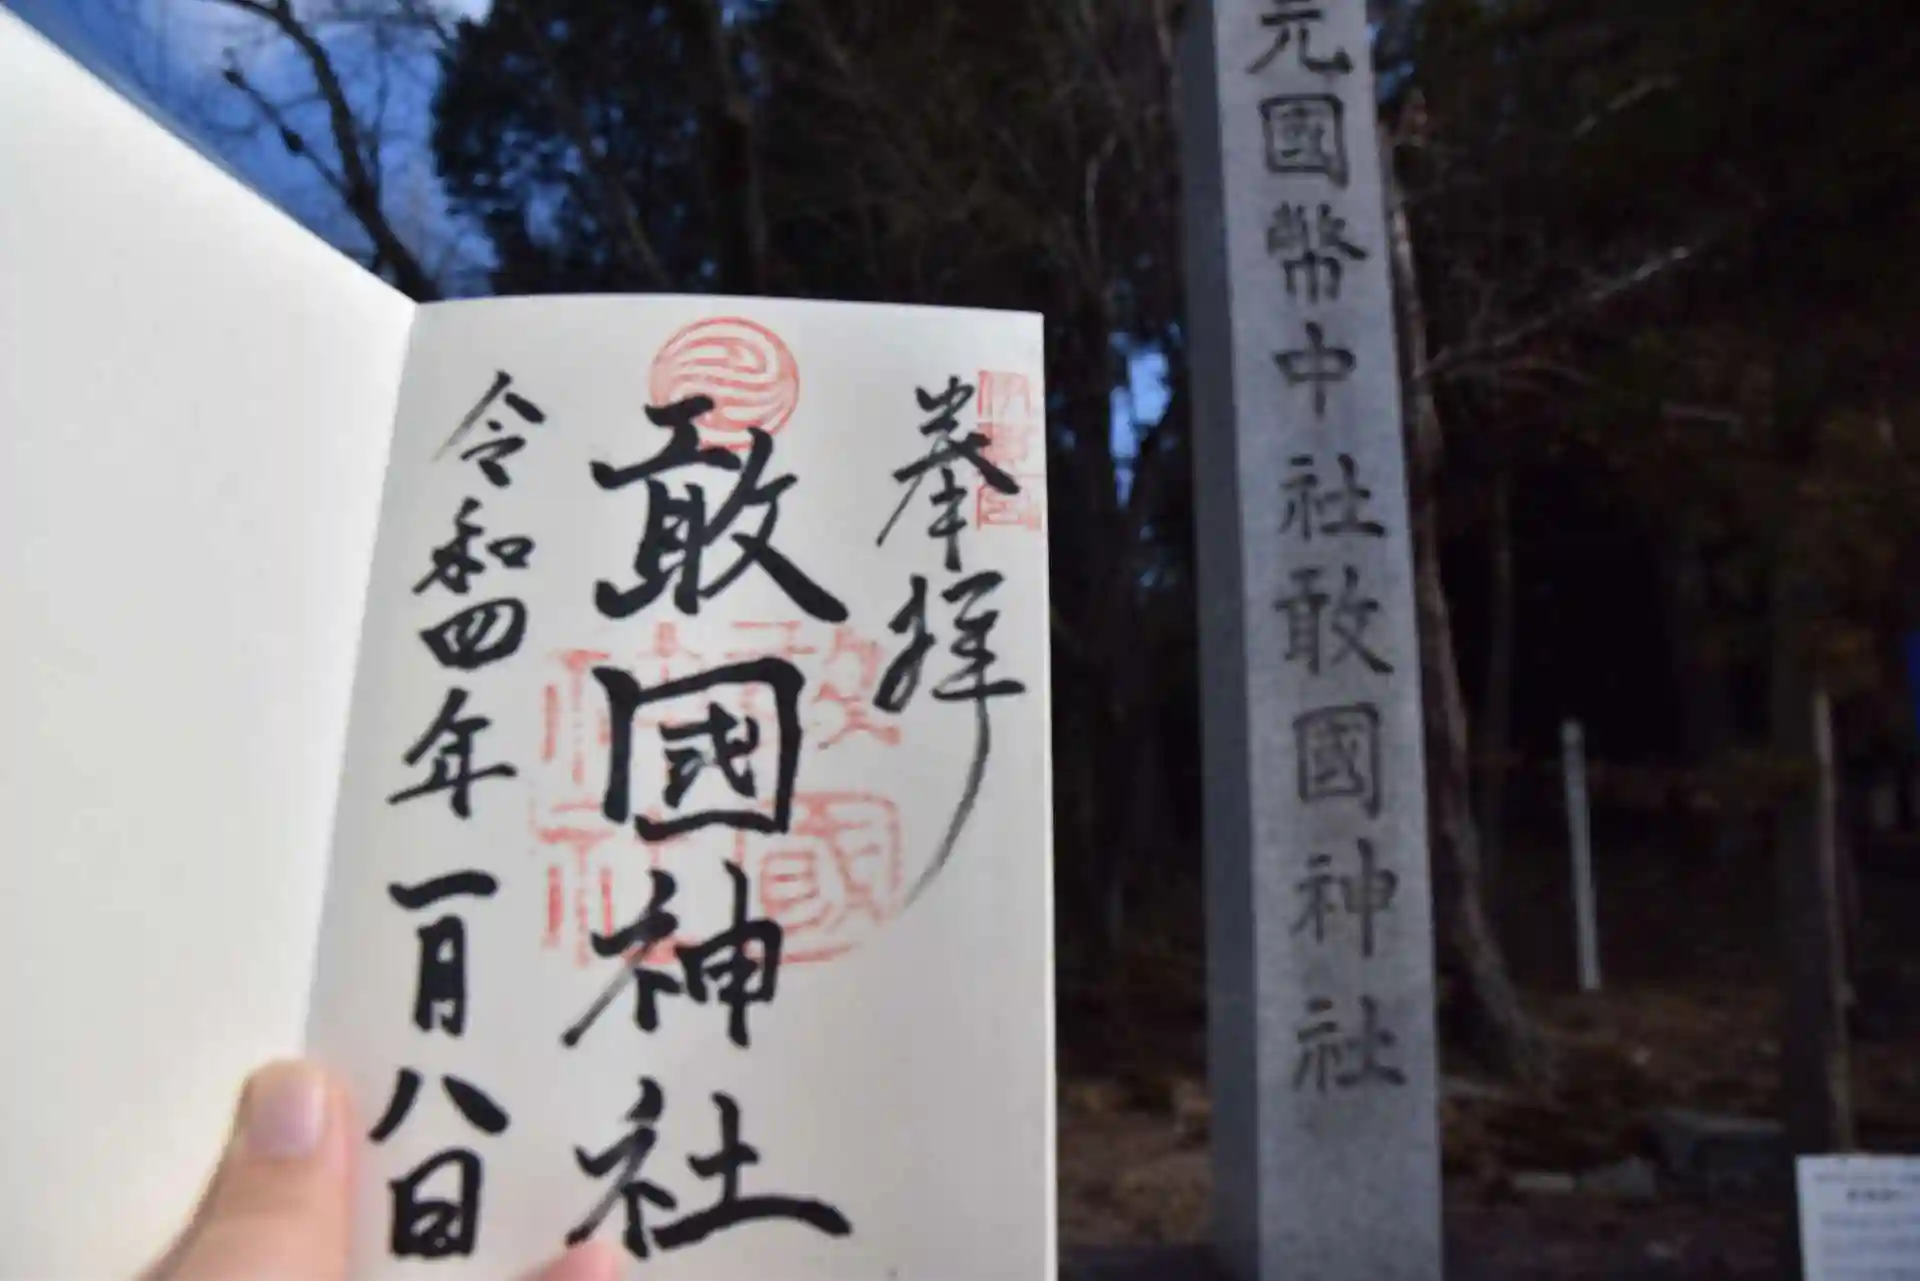 奉拝
敢國神社
令和四年一月八日
元國幣中社敢國神社